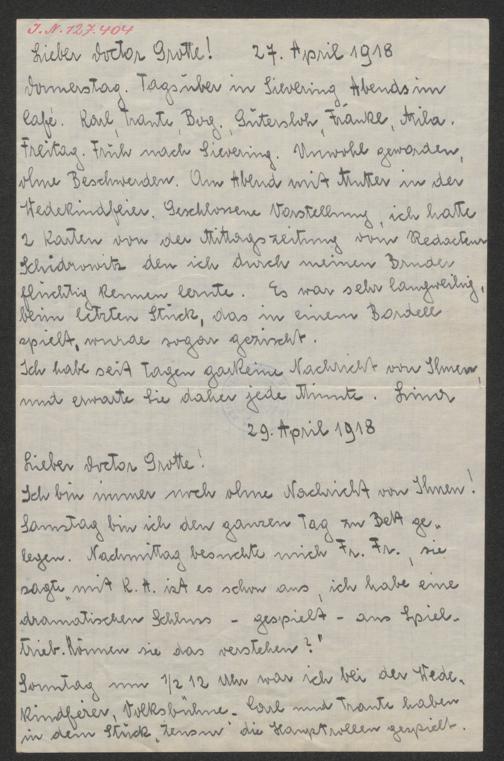 I.N. 127.404
Lieber Doctor Grotte! 27. April 1918
Donnerstag. Tagsüber in Sievering, Abends im
Café. Karl, Traute, Borg., Gütersloh, Franke, Mila.
Freitag. Früh nach Sievering. Unwohl geworden,
ohne Beschwerden. Am Abend mit Mutter in der
Wedekindfeier. Geschlossene Vorstellung, ich hatte
2 Karten von der Mittagszeitung vom Redacteur
Schidrowitz den ich durch meinen Bruder
flüchtig kennen lernte. Es war sehr langweilig,
beim letzten Stück, das in einem Bordell
spielt, wurde sogar gezischt.
Ich habe seit Tagen garkeine Nachricht von Ihnen,
und erwarte Sie daher jede Minute. Lina
29. April 1918
Lieber Doctor Grotte!
Ich bin immer noch ohne Nachricht von Ihnen!
Samstag bin ich den ganzen Tag zu Bett ge-
legen. Nachmittag besuchte mich Fr. Fr., sie
sagte „mit K. A. ist es schon aus, ich habe eine
dramatischen Schluss - gespielt - aus Spiel-
trieb. Können sie das verstehen?"
Sonntag um 1/2 12 Uhr war ich bei der Wede-
kindfeier, Volksbühne. Carl und Traute haben
in dem Stück „Zensur" die Hauptrollen gespielt.